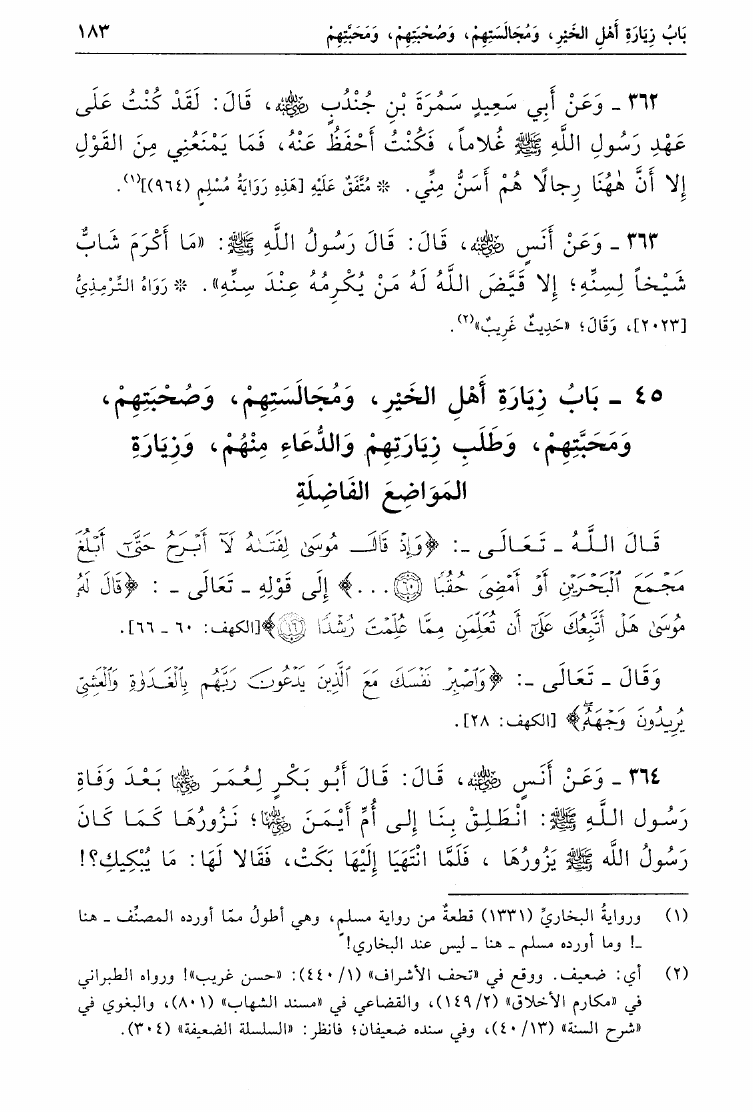 بَابُ زِيَارَةِ أَهْلِ الخَيْرِ، وَمُجَالَسَتِهِمْ، وَصُحْبَتِهِمْ، وَمَحَبَّتِهِمْ ١٨٣
٣٦٢ ـ وَعَنْ أَبِي سَعِيدٍ سَمُرَةَ بْنِ جُنْدُبٍ رضي الله عنه، قَالَ: لَقَدْ كُنْتُ عَلَى
عَهْدِ رَسُولِ اللَّهِ ﷺ غُلاماً، فَكُنْتُ أَحْفَظُ عَنْهُ، فَمَا يَمْنَعُنِي مِنَ القَوْلِ
إِلا أَنَّ هٰهُنَا رِجالًا هُمْ أَسَنُّ مِنِّي. * مُتَّفَقٌ عَلَيْهِ [هَذِهِ رَوَايَةُ مُسْلِمٍ (٩٦٤)](١).
٣٦٣ ـ وَعَنْ أَنَسٍ رضي الله عنه، قَالَ: قَالَ رَسُولُ اللَّهِ ﷺ: «مَا أَكْرَمَ شَابٌّ
شَيْخاً لِسِنِّهِ؛ إِلا قَيَّضَ اللَّهُ لَهُ مَنْ يُكْرِمُهُ عِنْدَ سِنِّهِ». * رَوَاهُ التِّرْمِذِيُّ
[٢٠٢٣]، وَقَالَ؛ «حَدِيثٌ غَرِيبٌ»(٢).
٤٥ ـ بَابُ زِيَارَةِ أَهْلِ الخَيْرِ، وَمُجَالَسَتِهِمْ، وَصُحْبَتِهِمْ،
وَمَحَبَّتِهِمْ، وَطَلَبِ زِيَارَتِهِمْ وَالدُّعَاءِ مِنْهُمْ، وَزِيَارَةِ
المَوَاضِعَ الفَاضِلَةِ
قَالَ اللَّهُ ـ تَعَالَى ـ: ﴿وَإِذْ قَالَ مُوسَىٰ لِفَتَىٰهُ لَآ أَبْرَحُ حَتَّىٰٓ أَبْلُغَ
مَجْمَعَ ٱلْبَحْرَيْنِ أَوْ أَمْضِىَ حُقُبًا ٦٠ ...﴾ إِلَى قَوْلِهِ ـ تَعَالَى ـ : ﴿قَالَ لَهُۥ
مُوسَىٰ هَلْ أَتَّبِعُكَ عَلَىٰٓ أَن تُعَلِّمَنِ مِمَّا عُلِّمْتَ رُشْدًا ٦٦﴾[الكهف: ٦٠ ـ ٦٦].
وَقَالَ ـ تَعَالَى ـ: ﴿وَٱصْبِرْ نَفْسَكَ مَعَ ٱلَّذِينَ يَدْعُونَ رَبَّهُم بِٱلْغَدَوٰةِ وَٱلْعَشِىِّ
يُرِيدُونَ وَجْهَهُۥ﴾ [الكهف: ٢٨].
٣٦٤ ـ وَعَنْ أَنَسٍ رضي الله عنه، قَالَ: قَالَ أَبُو بَكْرٍ لِعُمَرَ رضي الله عنهما بَعْدَ وَفَاةِ
رَسُولِ اللَّهِ ﷺ: انْطَلِقْ بِنَا إِلى أُمِّ أَيْمَنَ رضي الله عنها؛ نَزُورُهَا كَمَا كَانَ
رَسُولُ اللَّه ﷺ يَزُورُهَا ، فَلَمَّا انْتَهَيَا إِلَيْهَا بَكَتْ، فَقَالا لَهَا: مَا يُبْكِيكِ؟!
(١) وروايةُ البخاريِّ (١٣٣١) قطعةٌ من رواية مسلم، وهي أطولُ ممّا أورده المصنِّف ـ هنا
ـ! وما أورده مسلم ـ هنا ـ ليس عند البخاري!
(٢) أي: ضعيف. ووقع في «تحف الأشراف» (٤٤٠/١): «حسن غريب»! ورواه الطبراني
في «مكارم الأخلاق» (١٤٩/٢)، والقضاعي في «مسند الشهاب» (٨٠١)، والبغوي في
«شرح السنة» (٤٠/١٣)، وفي سنده ضعيفان؛ فانظر: «السلسلة الضعيفة» (٣٠٤).